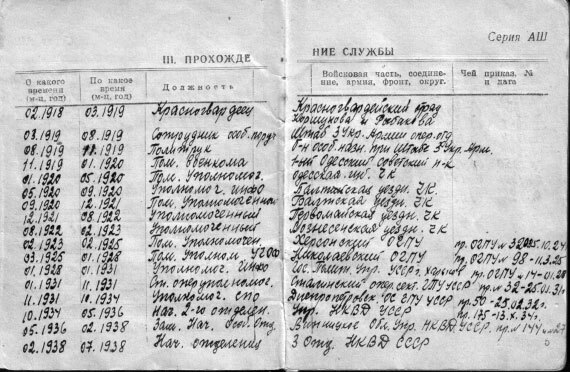 Серия АШ
III. ПРОХОЖДЕНИЕ СЛУЖБЫ
С какого времени (м-ц, год) По какое время (м-ц, год) Должность Войсковая часть, соединение, армия, фронт, округ. Чей приказ, № и дата
02.1918 03.1919 Красногвардеец Красногвардейский отряд
03.1919 08.1919 Сотрудник особ. поруч. Штаб 3 Укр. Армии опер. отд
08.1919 11.1919 Политрук б-н особ. назн. при штабе 3 Укр. Арм.
11.1919 01.1920 Пом. Военкома 1-ый Одесский советский п-к
01.1920 05.1920 Пом. Уполномоч. Одесская губ. ЧК
05.1920 09.1920 Уполномоч. инфо Балтская уездн. ЧК
09.1920 12.1921 Пом. Уполномоченный Балтская уездн. ЧК
12.1921 08.1922 Уполномоченный Первомайская уездн. ЧК
08.1922 02.1923 Уполномоченный Вознесенская уездн. ЧК
02.1923 02.1925 Пом. Уполномочен. Херсонский ОГПУ пр. ОГПУ №
03.1925 01.1928 Пом. Уполном. Николаевский ОГПУ пр. ОГПУ № 98-11.3.25
01.1928 01.1931 Уполномоч. Инфо Гос. Полит. Упр. УССР г. Харьков пр. ОГПУ № 14-01.28
01.1931 11.1931 Ст. оперуполномоч. Сталинский опер. сект. ГПУ УССР № 32-25.01.31
11.1931 10.1934 Уполномоч. СПО Днепропетровск. ОС ГПУ УССР пр. 50-25.02.32
10.1934 05.1936 Нач. 2-го отделен. Упр. НКВД УССР пр. 175-13.X.34 г.
05.1936 02.1938 Зам. Нач. Особ. Отд. Винницкое Обл. Упр. НКВД УССР пр. № 144
02.1938 07.1938 Нач. отделения 3 Отд. НКВД СССР